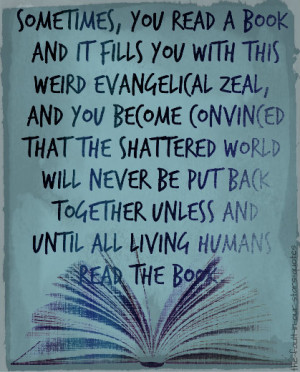 SOMETIMES, YOU READ A BOOK
AND IT FILLS YOU WITH THIS
WEIRD EVANGELICAL ZEAL,
AND YOU BECOME CONVINCED
THAT THE SHATTERED WORLD
WILL NEVER BE PUT BACK
TOGETHER UNLESS AND
UNTIL ALL LIVING HUMANS
READ THE BOOK